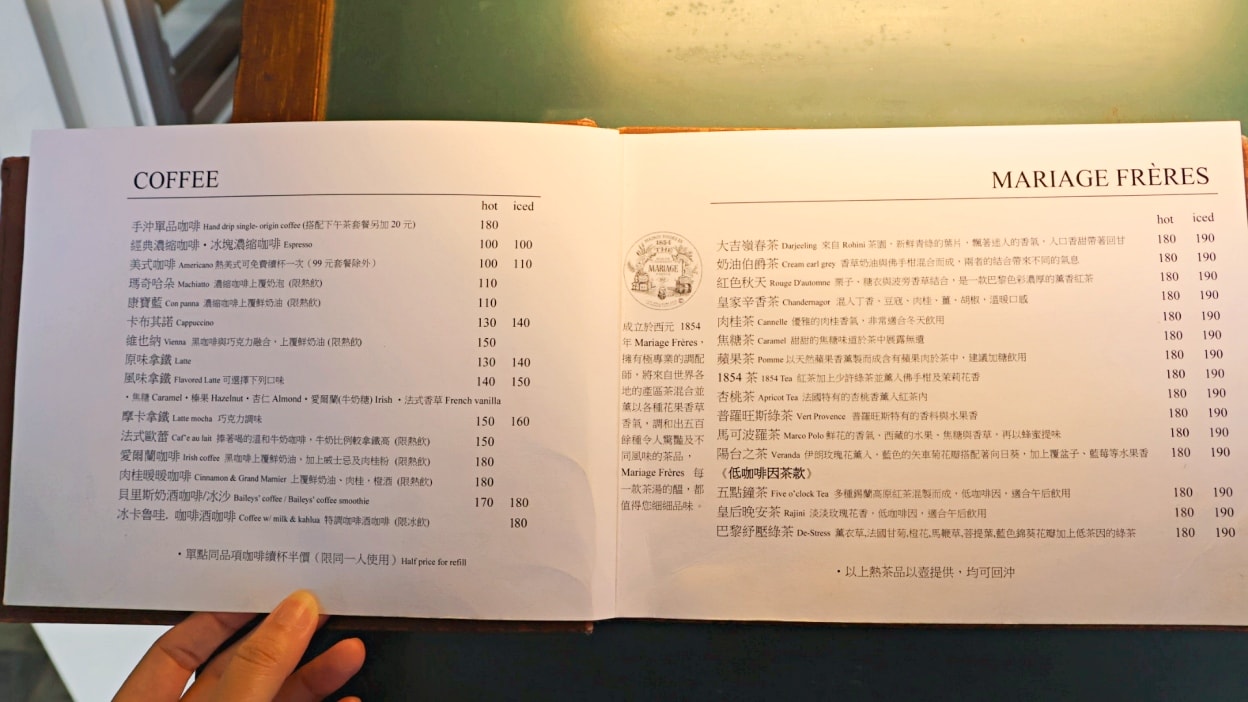 COFFEE
hot iced
手沖單品咖啡 Hand drip single- origin coffee (搭配下午茶套餐另加 20 元) 180
經典濃縮咖啡・冰塊濃縮咖啡 Espresso 100 100
美式咖啡 Americano 熱美式可免費續杯一次（99 元套餐除外） 100 110
瑪奇哈朵 Machiatto 濃縮咖啡上覆奶泡 (限熱飲) 110
康寶藍 Con panna 濃縮咖啡上覆鮮奶油 (限熱飲) 110
卡布其諾 Cappuccino 130 140
維也納 Vienna 黑咖啡與巧克力融合，上覆鮮奶油 (限熱飲) 150
原味拿鐵 Latte 130 140
風味拿鐵 Flavored Latte 可選擇下列口味 140 150
・焦糖 Caramel・榛果 Hazelnut・杏仁 Almond・愛爾蘭(牛奶糖) Irish ・法式香草 French vanilla
摩卡拿鐵 Latte mocha 巧克力調味 150 160
法式歐蕾 Caf'e au lait 捧著喝的溫和牛奶咖啡，牛奶比例較拿鐵高 (限熱飲) 150
愛爾蘭咖啡 Irish coffee 黑咖啡上覆鮮奶油，加上威士忌及肉桂粉 (限熱飲) 180
肉桂暖暖咖啡 Cinnamon & Grand Marnier 上覆鮮奶油、肉桂，橙酒 (限熱飲) 180
貝里斯奶酒咖啡/冰沙 Baileys' coffee / Baileys' coffee smoothie 170 180
冰卡魯哇．咖啡酒咖啡 Coffee w/ milk & kahlua 特調咖啡酒咖啡 (限冰飲) 180
・單點同品項咖啡續杯半價（限同一人使用）Half price for refill
MARIAGE FRÈRES
hot iced
1854
MARIAGE
成立於西元 1854
年 Mariage Frères，
擁有極專業的調配
師，將來自世界各
地的產區茶混合並
薰以各種花果香草
香氣，調和出五百
餘種令人驚豔及不
同風味的茶品，
Mariage Frères 每
一款茶湯的醞，都
值得您細細品味。
大吉嶺春茶 Darjeeling 來自 Rohini 茶園，新鮮青綠的葉片，飄著迷人的香氣，入口香甜帶著回甘 180 190
奶油伯爵茶 Cream earl grey 香草奶油與佛手柑混合而成，兩者的結合帶來不同的氣息 180 190
紅色秋天 Rouge D'automne 栗子、糖衣與波旁香草結合，是一款巴黎色彩濃厚的薰香紅茶 180 190
皇家辛香茶 Chandernagor 混人丁香、豆寇、肉桂、薑、胡椒，溫暖口感 180 190
肉桂茶 Cannelle 優雅的肉桂香氣，非常適合冬天飲用 180 190
焦糖茶 Caramel 甜甜的焦糖味道於茶中展露無遺 180 190
蘋果茶 Pomme 以天然蘋果香薰製而成含有蘋果肉於茶中，建議加糖飲用 180 190
1854 茶 1854 Tea 紅茶加上少許綠茶並薰人佛手柑及茉莉花香 180 190
杏桃茶 Apricot Tea 法國特有的杏桃香薰人紅茶內 180 190
普羅旺斯綠茶 Vert Provence 普羅旺斯特有的香料與水果香 180 190
馬可波羅茶 Marco Polo 鮮花的香氣、西藏的水果、焦糖與香草，再以蜂蜜提味 180 190
陽台之茶 Veranda 伊朗玫瑰花薰人，藍色的矢車菊花瓣搭配著向日葵，加上覆盆子、藍莓等水果香 180 190
《低咖啡因茶款》
五點鐘茶 Five o'clock Tea 多種錫蘭高原紅茶混製而成，低咖啡因，適合午后飲用 180 190
皇后晚安茶 Rajini 淡淡玫瑰花香，低咖啡因，適合午后飲用 180 190
巴黎紓壓綠茶 De-Stress 薰衣草,法國甘菊,橙花,馬鞭草,菩提葉,藍色錦葵花瓣加上低茶因的綠茶 180 190
・以上熱茶品以壺提供，均可回沖